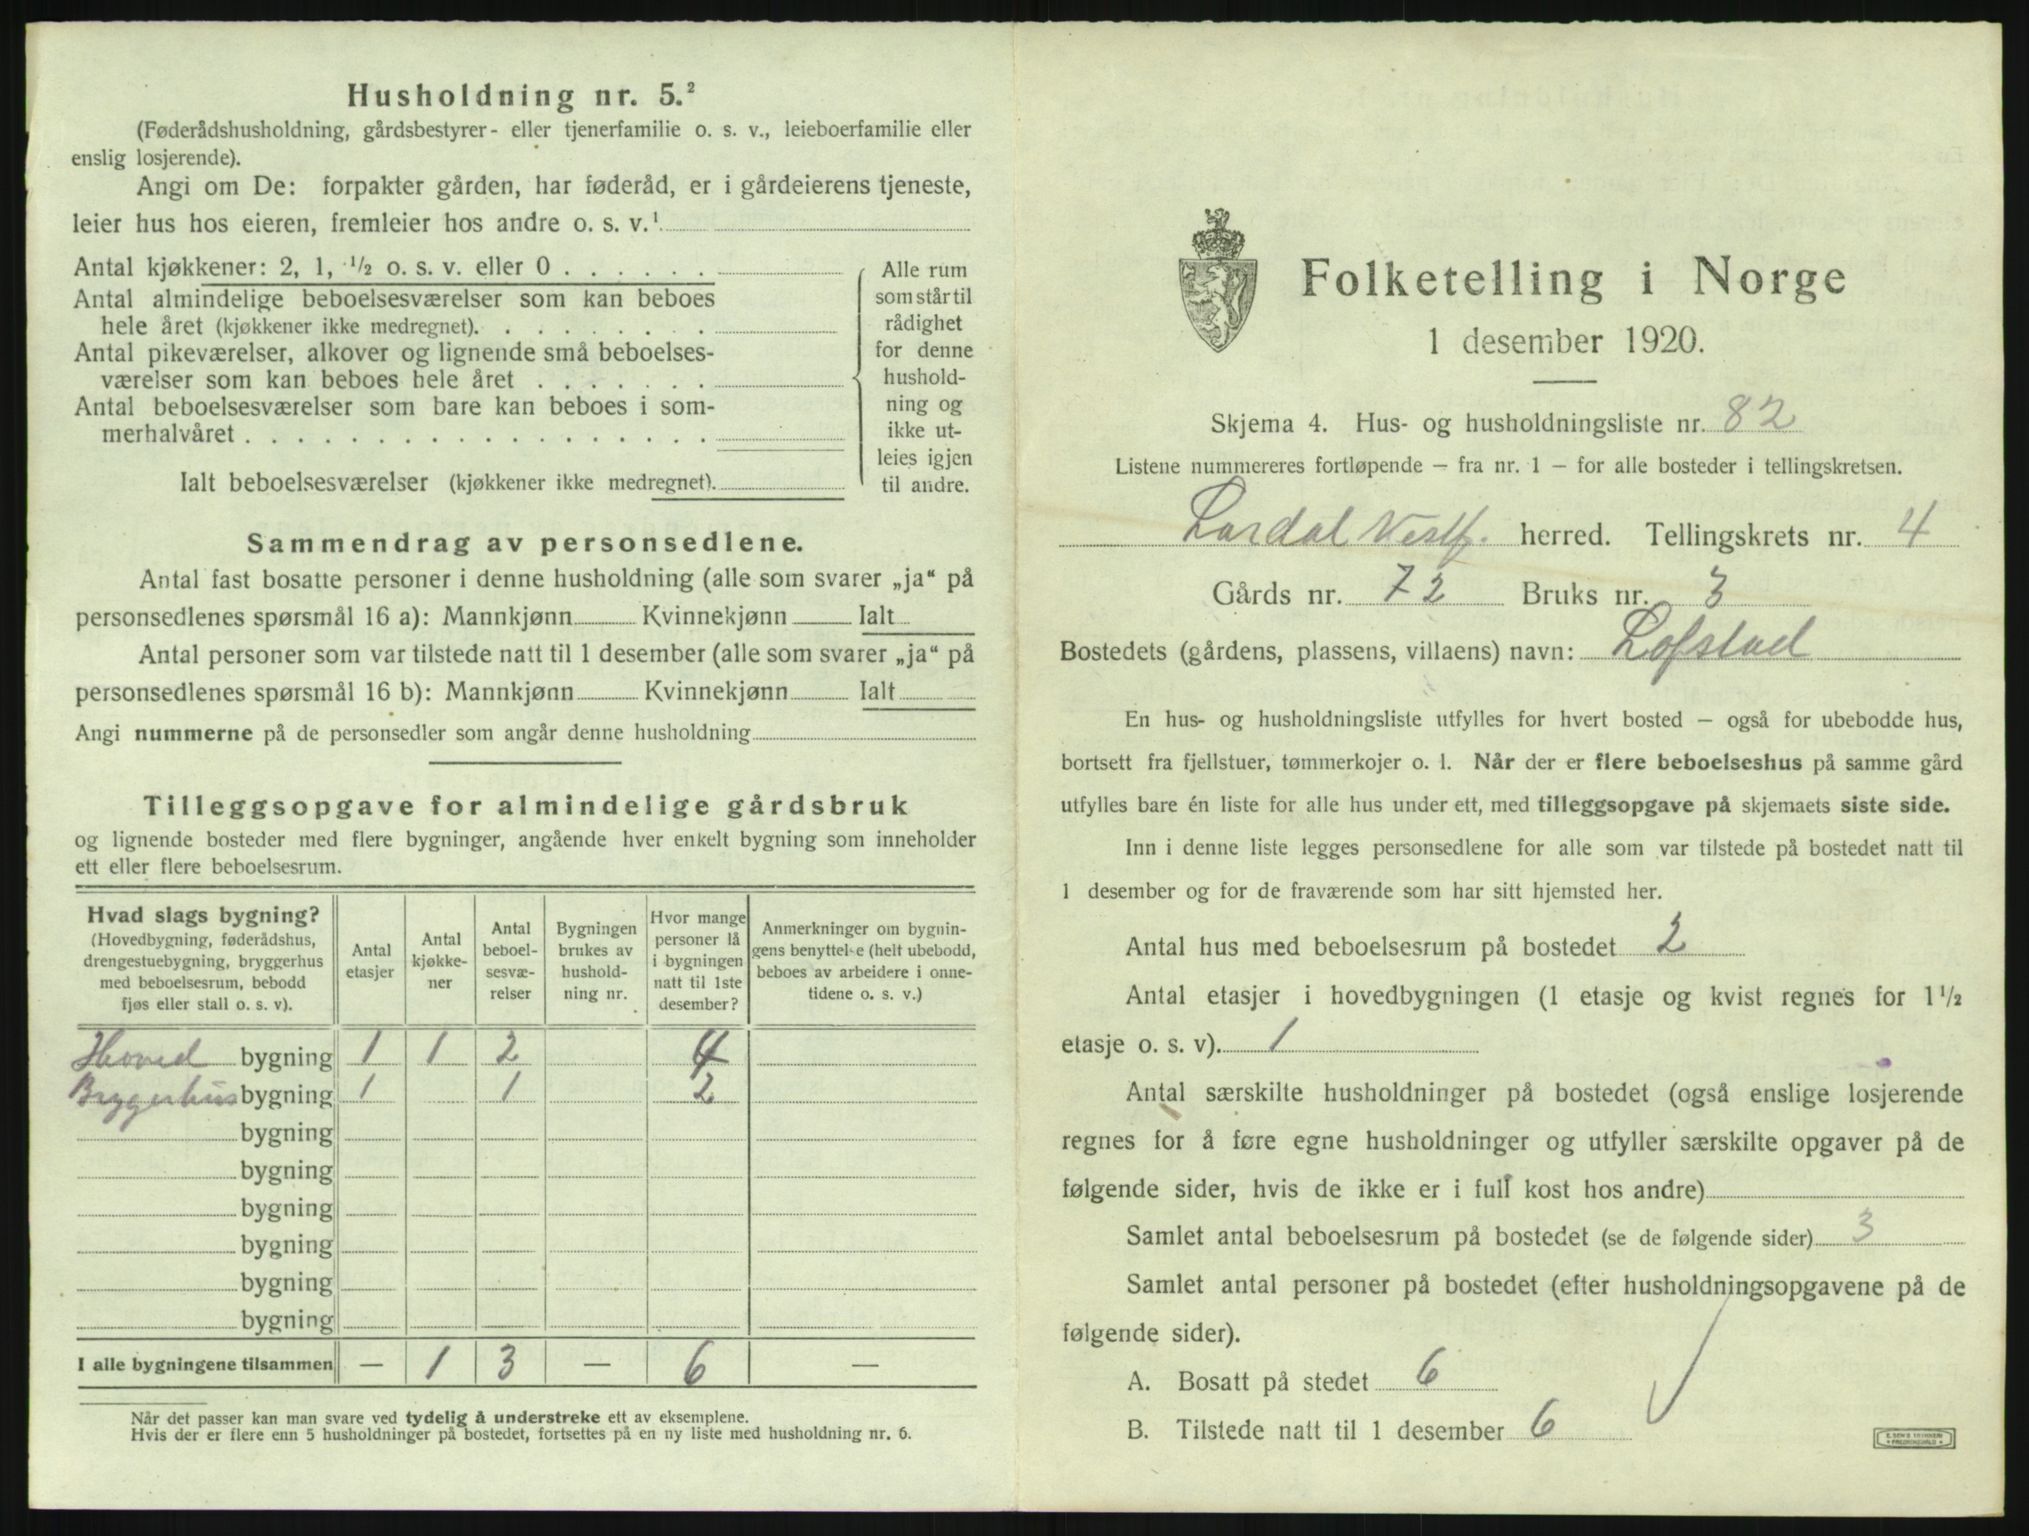 Husholdning nr. 5.²
(Føderådshusholdning, gårdsbestyrer- eller tjenerfamilie o. s. v., leieboerfamilie eller
enslig losjerende).
Angi om De: forpakter gården, har føderåd, er i gårdeierens tjeneste,
leier hus hos eieren, fremleier hos andre o. s. v.¹
Antal kjøkkener: 2, 1, ½ o. s. v. eller 0 . . . . . .
Antal almindelige beboelsesværelser som kan beboes
hele året (kjøkkener ikke medregnet). . . . . . . . .
Antal pikeværelser, alkover og lignende små beboelses-
værelser som kan beboes hele året . . . . . . .
Antal beboelsesværelser som bare kan beboes i som-
merhalvåret . . . . . . . . . . . . . . . . . .
Ialt beboelsesværelser (kjøkkener ikke medregnet).
Alle rum
som står til
rådighet
for denne
hushold-
ning og
ikke ut-
leies igjen
til andre.
Sammendrag av personsedlene.
Antal fast bosatte personer i denne husholdning (alle som svarer „ja“ på
personsedlenes spørsmål 16 a): Mannkjønn Kvinnekjønn Ialt
Antal personer som var tilstede natt til 1 desember (alle som svarer „ja“ på
personsedlenes spørsmål 16 b): Mannkjønn Kvinnekjønn Ialt
Angi nummerne på de personsedler som angår denne husholdning
Tilleggsopgave for almindelige gårdsbruk
og lignende bosteder med flere bygninger, angående hver enkelt bygning som inneholder
ett eller flere beboelsesrum.
Hvad slags bygning?
(Hovedbygning, føderådshus,
drengestuebygning, bryggerhus
med beboelsesrum, bebodd
fjøs eller stall o. s. v).
Antal
etasjer
Antal
kjøkke-
ner
Antal
beboel-
sesvæ-
relser
Bygningen
brukes av
hushold-
ning nr.
Hvor mange
personer lå
i bygningen
natt til 1ste
desember?
Anmerkninger om bygnin-
gens benyttelse (helt ubebodd,
beboes av arbeidere i onne-
tidene o. s. v.)
Hoved bygning 1 1 2 4
Bryggerhus bygning 1 1 2
bygning
bygning
bygning
bygning
bygning
bygning
I alle bygningene tilsammen — 1 3 — 6 —
Når det passer kan man svare ved tydelig å understreke ett av eksemplene.
Hvis der er flere enn 5 husholdninger på bostedet, fortsettes på en ny liste med husholdning nr. 6.
Folketelling i Norge
1 desember 1920.
Skjema 4. Hus- og husholdningsliste nr. 82
Listene nummereres fortløpende – fra nr. 1 – for alle bosteder i tellingskretsen.
Lardal Vestf. herred. Tellingskrets nr. 4
Gårds nr. 72 Bruks nr. 3
Bostedets (gårdens, plassens, villaens) navn: Lofstad
En hus- og husholdningsliste utfylles for hvert bosted – også for ubebodde hus,
bortsett fra fjellstuer, tømmerkojer o. l. Når der er flere beboelseshus på samme gård
utfylles bare én liste for alle hus under ett, med tilleggsopgave på skjemaets siste side.
Inn i denne liste legges personsedlene for alle som var tilstede på bostedet natt til
1 desember og for de fraværende som har sitt hjemsted her.
Antal hus med beboelsesrum på bostedet 2
Antal etasjer i hovedbygningen (1 etasje og kvist regnes for 1½
etasje o. s. v). 1
Antal særskilte husholdninger på bostedet (også enslige losjerende
regnes for å føre egne husholdninger og utfyller særskilte opgaver på de
følgende sider, hvis de ikke er i full kost hos andre)
Samlet antal beboelsesrum på bostedet (se de følgende sider) 3
Samlet antal personer på bostedet (efter husholdningsopgavene på de
følgende sider).
A. Bosatt på stedet 6
B. Tilstede natt til 1 desember 6